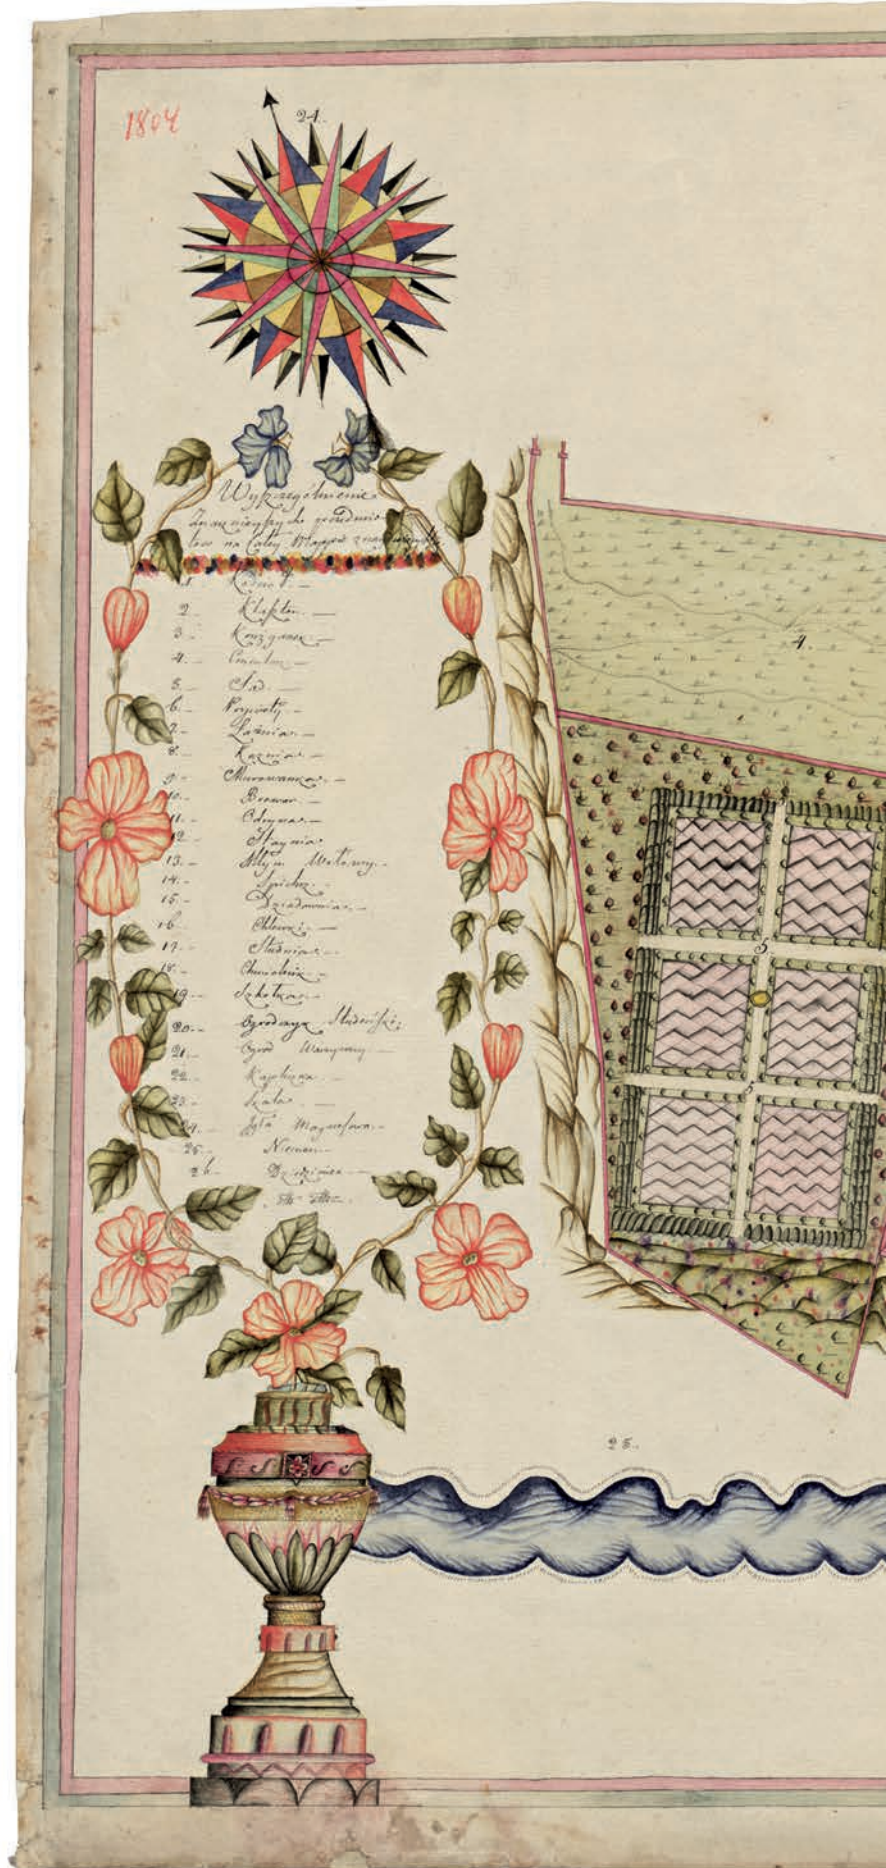 1804
24.
Wyszczególnienie
Znacznieyszych przedmio-
tow na całey Mappie
1 Kościoł. —
2 — Klasztor. —
3 —
4. — Cmentarz —
5. — Sad. —
6. —
7. — Łaźnia. —
8. —
9. — Murowanka. —
10. — Browar. —
11. — Odryna. —
12 Staynia.
13. — Młyn Wołowy. —
14. — Spichrz. —
15. — Dziadownia. —
16 Chlewki —
17. — Studnia. —
18. — Chmielnik —
19 — Szkołka. —
20. — Studeński:
21. — Ogrod Warzywny —
22. — Kaplica —
23. —
24. — Jgła Magnesowa. —
25. — Niemen —
26. Dziedziniec —
4.
5
5
25.